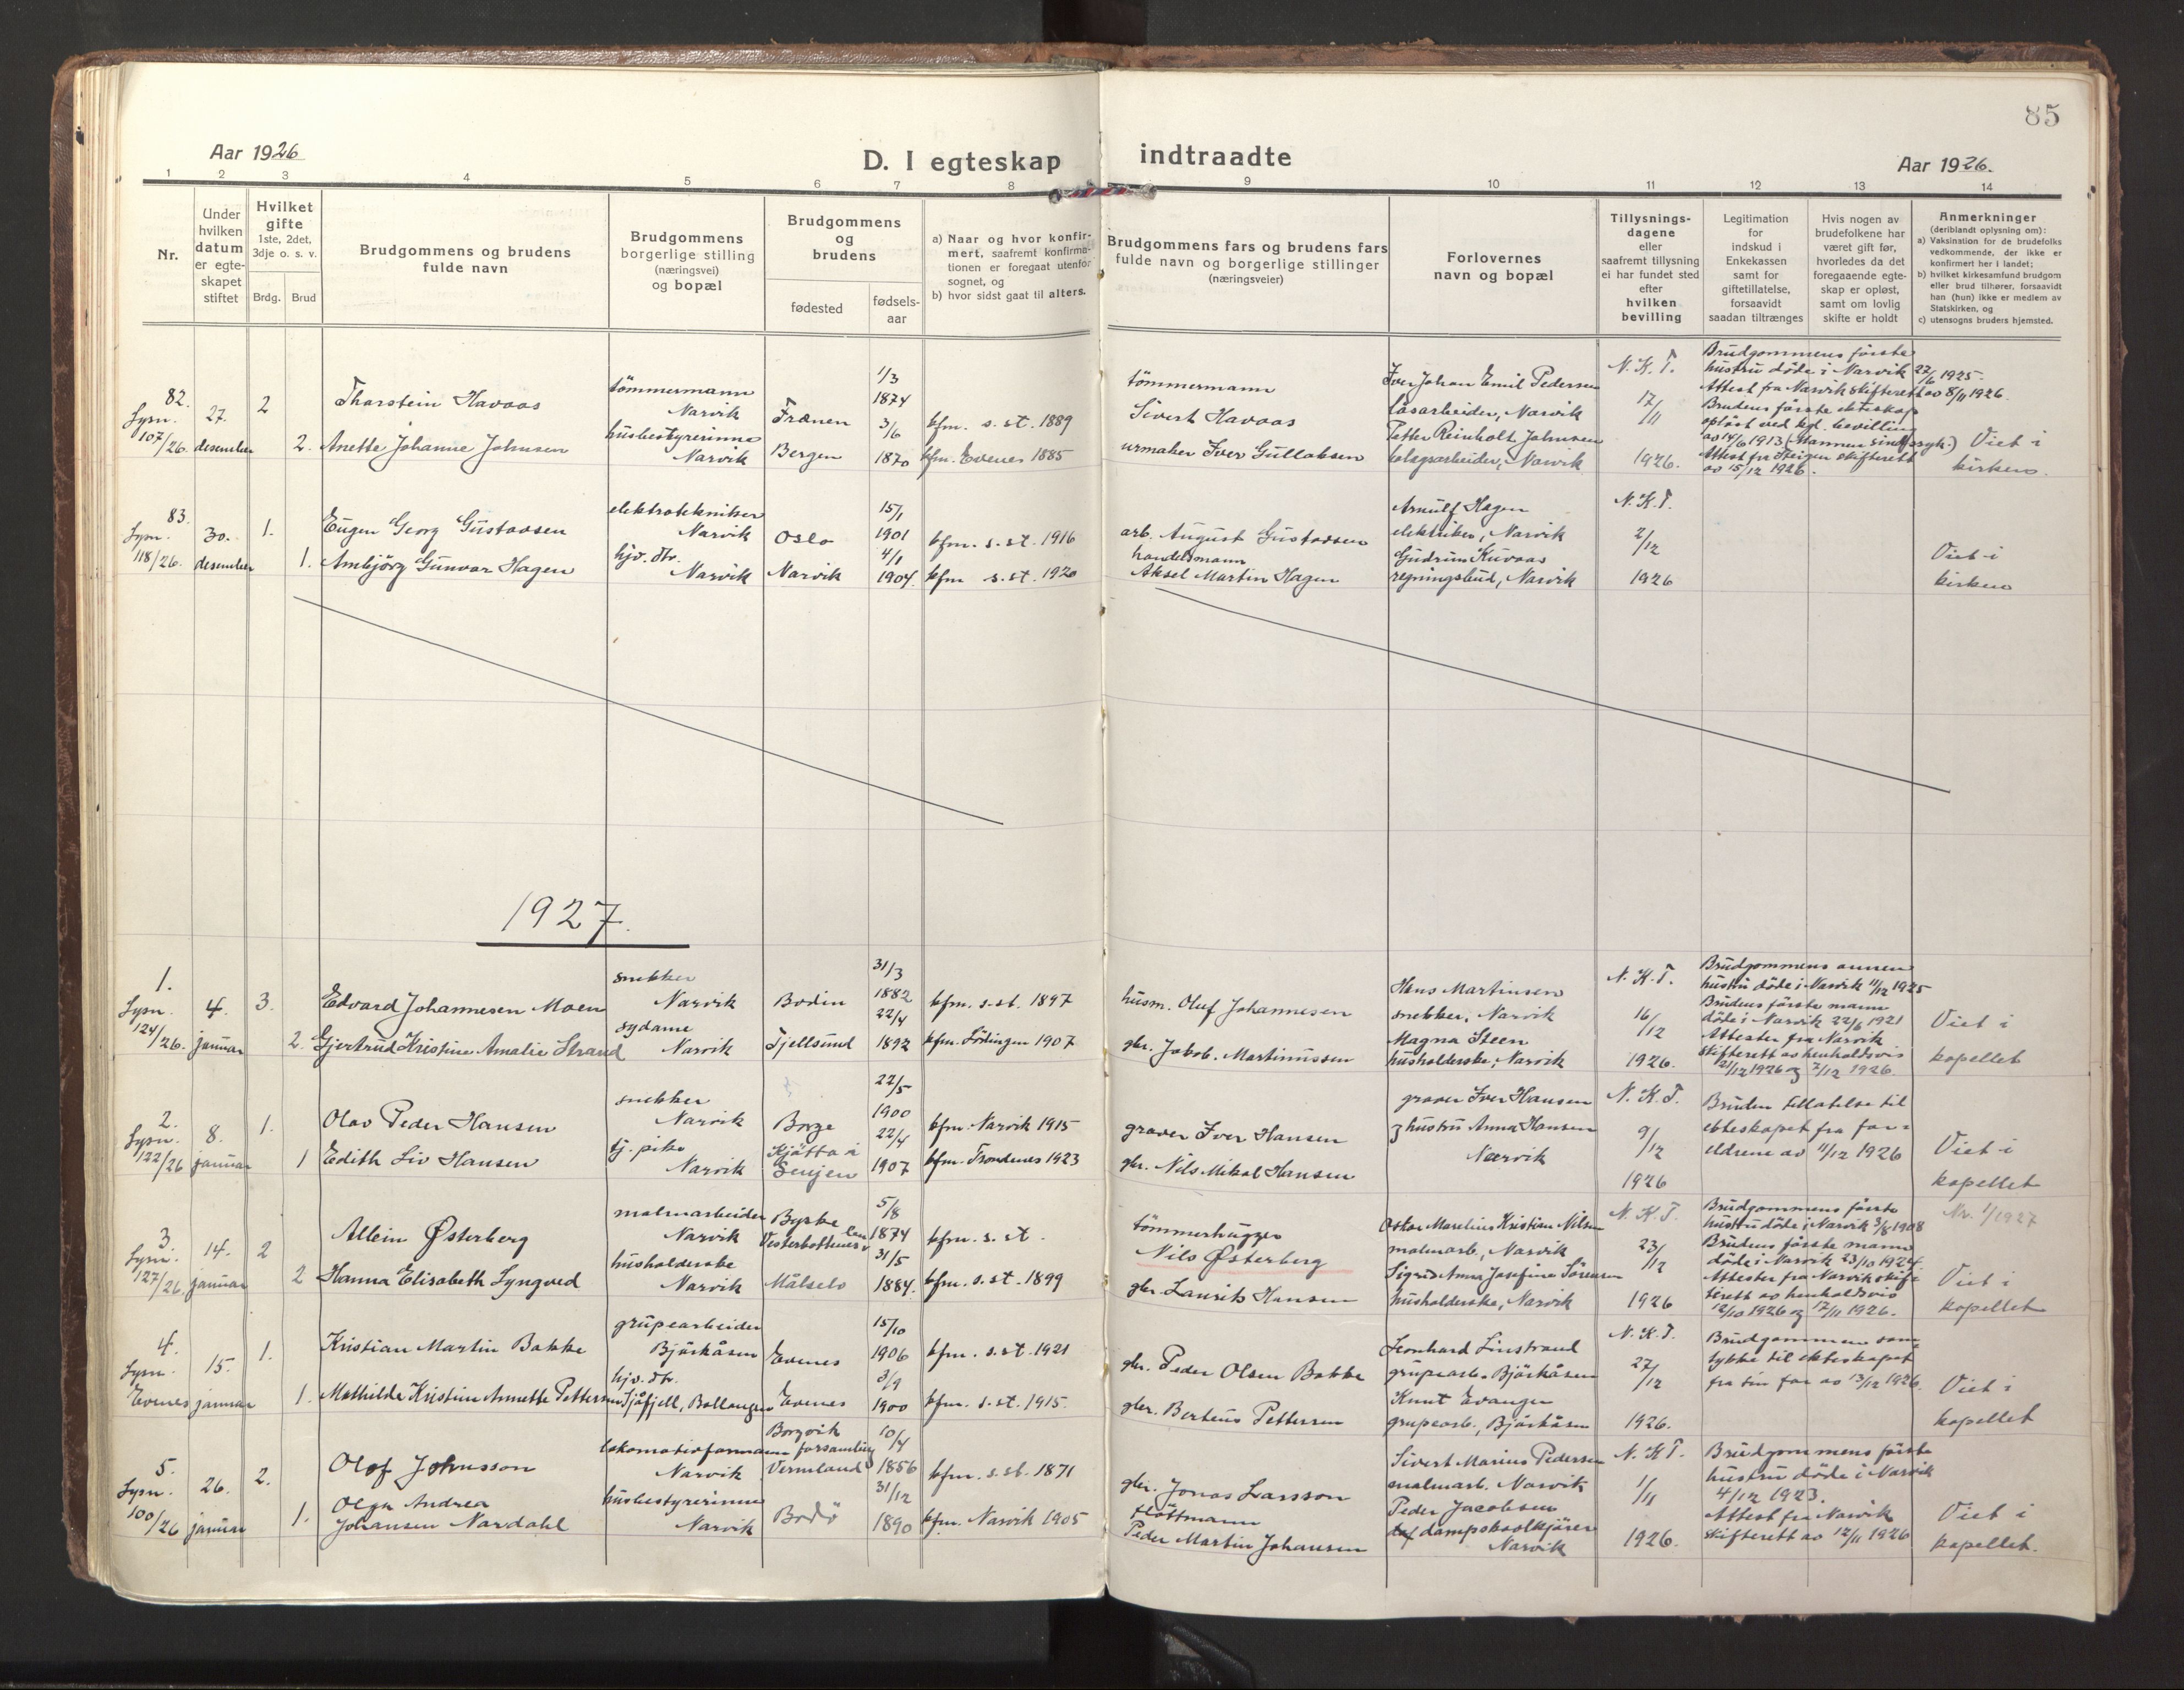 85
Aar 1926
D. I egteskap
indtraadte
Aar 1926.
1 2 3 4 5 6 7 8 9 10 11 12 13 14
Nr.
Under
hvilken
datum
er egte-
skapet
stiftet
Hvilket
gifte
1ste, 2det,
3dje o. s. v.
Brdg. Brud
Brudgommens og brudens
fulde navn
Brudgommens
borgerlige stilling
(næringsvei)
og bopæl
Brudgommens
og
brudens
fødested
fødsels-
aar
a) Naar og hvor konfir-
mert, saafremt konfirma-
tionen er foregaat utenfor
sognet, og
b) hvor sidst gaat til alters.
Brudgommens fars og brudens fars
fulde navn og borgerlige stillinger
(næringsveier)
Forlovernes
navn og bopæl
Tillysnings-
dagene
eller
saafremt tillysning
ei har fundet sted
efter
hvilken
bevilling
Legitimation
for
indskud i
Enkekassen
samt for
giftetillatelse,
forsaavidt
saadan tiltrænges
Hvis nogen av
brudefolkene har
været gift før,
hvorledes da det
foregaaende egte-
skap er opløst,
samt om lovlig
skifte er holdt
Anmerkninger
(deriblandt oplysning om):
a) Vaksination for de brudefolks
vedkommende, der ikke er
konfirmert her i landet;
b) hvilket kirkesamfund brudgom
eller brud tilhører, forsaavidt
han (hun) ikke er medlem av
Statskirken, og
c) utensogns bruders hjemsted.
82.
Lysn.
107/26.
27.
desember
2
2.
Thorstein Havaas
Anette Johanne Johnsen
tömmermann
Narvik
husbestyrerinne
Narvik
Frænen
Bergen
1/3
1874
3/6
1870
kfm. s. st. 1889
kfm. Evenes 1885
tömmermann
Sivert Havaas
urmaker Iver Gullaksen
Iver Johan Emil Pedersen
låsarbeider, Narvik
Petter Reinholt Johnsen
bolagsarbeider, Narvik
N. K. T.
17/11
1926.
Brudgommens förste
hustru döde i Narvik 22/6 1925.
Attest fra Narvik skifterett av 8/11 1926.
Brudens förste ekteskap
oplöst ved kgl. bevilling
av 14/6 1913 (Mannen sindssyk)
Attest fra Steigen skifterett
av 15/12 1926.
Viet i
kirken.
83.
Lysn.
118/26.
30.
desember
1.
1.
Eugen Georg Gustavsen
Ambjörg Gunvor Hagen
elektrotekniker
Narvik
hjv. dtr.
Narvik
Oslo
Narvik
15/1
1901
4/1
1904.
kfm. s. st. 1916
kfm s. st. 1920
arb. August Gustavsen
handelsmann
Aksel Martin Hagen
Arnulf Hagen
elektriker, Narvik
Gudrun Kuvaas
regningsbud, Narvik
N. K. T.
2/12
1926
Viet i
kirken
1927.
1.
Lysn.
124/26.
4.
januar
3.
2.
Edvard Johannesen Moen
Gjertrud Kristine Amalie Strand
snekker
Narvik
sydame
Narvik
Bodin
Tjellsund
31/3
1882
22/4
1892
kfm. s. st. 1897
kfm. Lödingen 1907
husm. Oluf Johannesen
gbr. Jakob. Martinussen
Hans Martinsen
snekker, Narvik
Magna Steen
husholderske, Narvik
N. K. T.
16/12
1926.
Brudgommens annen
hustru döde i Narvik 11/12 1925
Brudens förste mann
döde i Narvik 22/6 1921
Attester fra Narvik
skifterett av henholdsvis
12/12 1926 og 7/12 1926
Viet i
kapellet
2.
Lysn.
122/26
8.
januar
1.
1
Olav Peder Hansen
Edith Liv Hansen
snekker
Narvik
tj. pike
Narvik
Borge
Kjötta i
Senjen
22/5
1900
22/4
1907
kfm. Narvik 1915
kfm. Trondenes 1923
graver Iver Hansen
gbr. Nils Mikal Hansen
graver Iver Hansen
og hustru Anna Hansen
Narvik
N. K. T.
9/12
1926
Bruden tillatelse til
ekteskapet fra for-
eldrene av 11/12 1926
Viet i
kapellet
3.
Lysn.
127/26
14.
januar
2
2
Albin Østerberg
Hanna Elisabeth Lyngved
malmarbeider
Narvik
husholderske
Narvik
Byske
Vesterbottens len
Målselv
5/8
1874
31/5
1884.
kfm. s. st.
kfm. s. st. 1899
tömmerhugger
Nils Østerberg
gbr. Laurits Hansen
Oskar Marelius Kristian Nilsen
malmarb., Narvik
Sigrid Anna Josefine Sörensen
husholderske, Narvik
N. K. T.
23/12
1926
Brudgommens förste
hustru döde i Narvik 3/8 1908
Brudens förste mann
döde i Narvik 23/10 1924.
Attester fra Narvik skif-
terett av henholdsvis
12/10 1926 og 17/11 1926.
Nr. 1/1927
Viet i
kapellet
4.
Lysn.
Evenes
15.
januar
1.
1.
Kristian Martin Bakke
Mathilde Kristine Annette Pettersen
grupearbeider
Bjärkåsen
hjv. dtr.
Sjåfjell, Ballangen
Evenes
Evenes
15/10
1906
3/9
1900
kfm. s. st. 1921
kfm. s. st. 1915.
gbr. Peder Olsen Bakke
gbr. Berteus Pettersen
Leonhard Linstrand
grupearb. Bjärkåsen
Knut Evanger
grupearb., Bjärkåsen
N. K. T.
27/12
1926.
Brudgommen sam-
tykke til ekteskapet
fra sin far av 13/12 1926.
Viet i
kapellet
5.
Lysn.
100/26
26.
januar
2.
1.
Olof Johnsson
Olga Andrea
Johansen Nardahl
lokomotivformann
Narvik
husbestyrerinne
Narvik
Borgvik
forsamling
Vermland
Bodö
10/4
1856
31/12
1890
kfm. s. st. 1871
kfm. Narvik 1905
gbr. Jonas Larsson
flöttmann
Peder Martin Johansen
Sivert Marius Pedersen
malmarb. Narvik
Peder Jacobsen
dampskovlkjörer
Narvik
N. K. T.
1/11
1926.
Brudgommens förste
hustru döde i Narvik
4/12 1923.
Attest fra Narvik
skifterett av 12/11 1926
Viet i
kapellet.